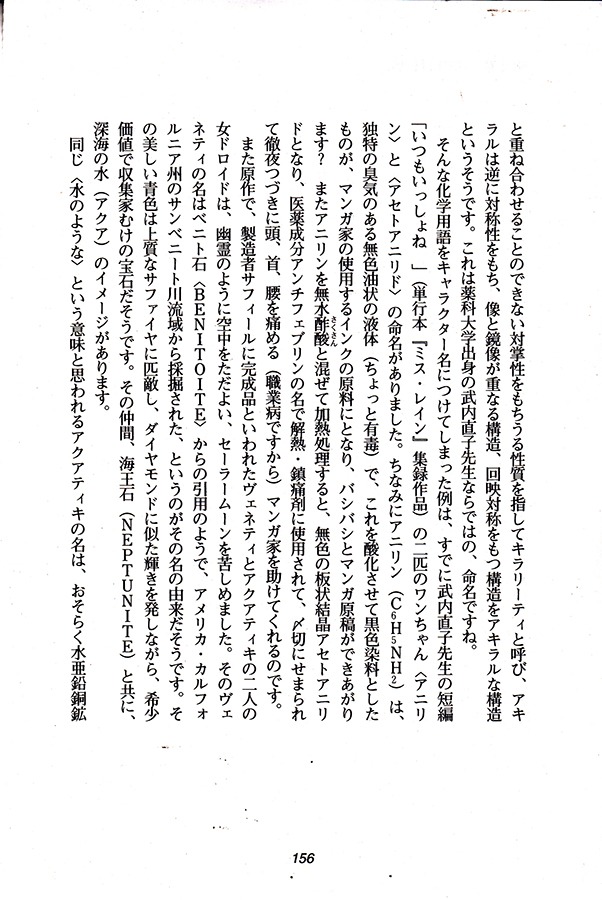 と重ね合わせることのできない対掌性をもちうる性質を指してキラリーティと呼び、アキ
ラルは逆に対称性をもち、像と鏡像が重なる構造、回映対称をもつ構造をアキラルな構造
というそうです。これは薬科大学出身の武内直子先生ならではの、命名ですね。
そんな化学用語をキャラクター名につけてしまった例は、すでに武内直子先生の短編
「いつもいっしょね 」(単行本『ミス・レイン』集録作品)の二匹のワンちゃん〈アニリ
ン〉と〈アセトアニリド〉の命名がありました。ちなみにアニリン(C6H5NH2)は、
独特の臭気のある無色油状の液体(ちょっと有毒)で、これを酸化させて黒色染料とした
ものが、マンガ家の使用するインクの原料にとなり、バシバシとマンガ原稿ができあがり
ます? またアニリンを無水酢酸と混ぜて加熱処理すると、無色の板状結晶アセトアニリ
さくさん
ドとなり、医薬成分アンチフェブリンの名で解熱・鎮痛剤に使用されて、〆切にせまられ
て徹夜つづきに頭、首、腰を痛める(職業病ですから)マンガ家を助けてくれるのです。
また原作で、製造者サフィールに完成品といわれたヴェネティとアクアティキの二人の
女ドロイドは、幽霊のように空中をただよい、セーラームーンを苦しめました。そのヴェ
ネティの名はベニト石〈BENITOITE〉からの引用のようで、アメリカ・カルフォ
ルニア州のサンベニート川流域から採掘された、というのがその名の由来だそうです。そ
の美しい青色は上質なサファイヤに匹敵し、ダイヤモンドに似た輝きを発しながら、希少
価値で収集家むけの宝石だそうです。その仲間、海王石(NEPTUNITE)と共に、
深海の水(アクア)のイメージがあります。
同じ〈水のような〉という意味と思われるアクアティキの名は、おそらく水亜鉛銅鉱
156